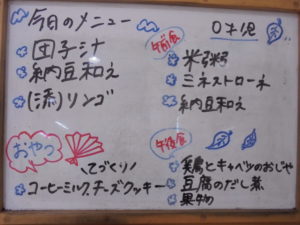 今日のメニュー
団子汁
納豆和え
(添)リンゴ
おやつ
てづくり!
コーヒーミルク、チーズクッキー
0才児
午前食
米粥
ミネストローネ
納豆和え
午後食
鶏とキャベツのおじや
豆腐のだし煮
果物